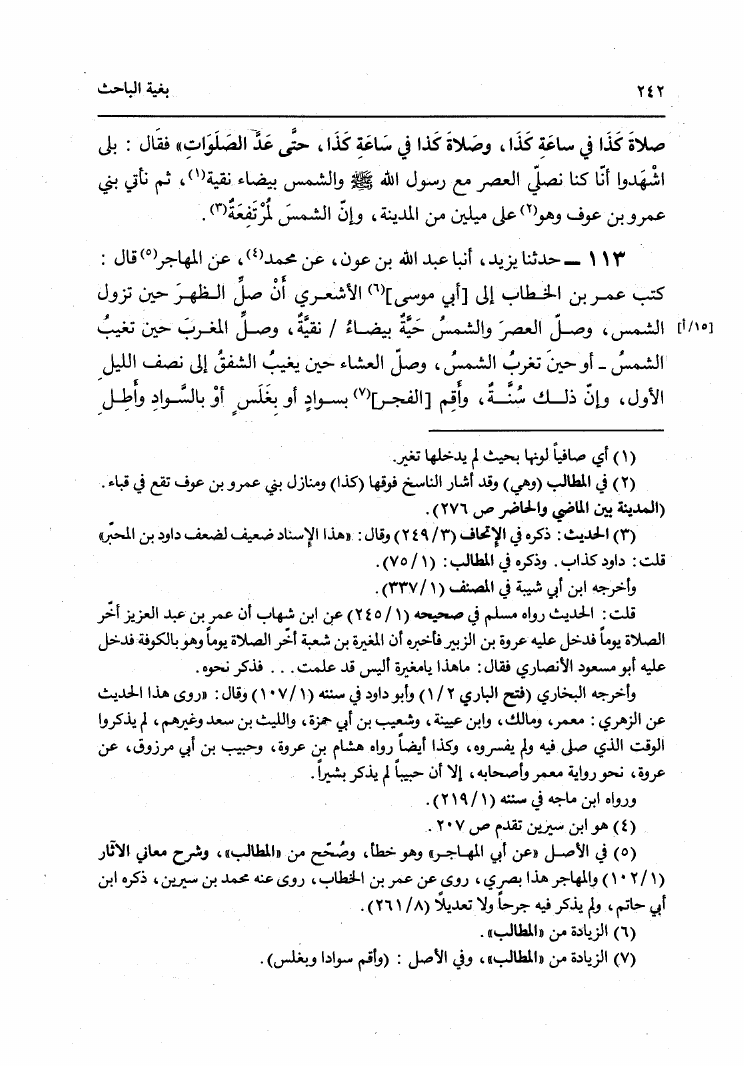 ٢٤٢
بغية الباحث
صلاةَ كَذَا في ساعَةِ كَذَا، وصَلاةَ كذا في سَاعَةِ كَذَا، حتَّى عَدَّ الصَلَوَاتِ» فقَال : بلى
اشْهَدوا أنّا كنا نصلّي العصر مع رسول الله ﷺ والشمس بيضاء نقية(١)، ثم نأتي بني
عمرو بن عوف وهو(٢) على ميلين من المدينة، وإنّ الشمسَ لمُرْتَفِعَةٌ(٣).
١١٣ ــ حدثنا يزيد، أنبا عبد الله بن عون، عن محمد(٤)، عن المهاجر(٥) قال :
كتب عمر بن الخطاب إلى [أبي موسى](٦) الأشعري أَنْ صلِّ الظهرَ حين تزول
[١٥/أ] الشمس، وصلّ العصرَ والشمسُ حَيَّةٌ بيضاءُ / نقيَّةٌ، وصلِّ المغربَ حين تغيبُ
الشمسُ ـ أو حينَ تغربُ الشمسُ، وصلّ العشاء حين يغيبُ الشفقُ إلى نصف الليلِ
الأول، وإنّ ذلك سُنَّةٌ، وأَقِم [الفجر](٧) بسوادٍ أو بغَلَسٍ أوْ بالسَّوادِ وأَطِلِ
(١) أي صافياً لونها بحيث لم يدخلها تغير.
(٢) في المطالب (وهي) وقد أشار الناسخ فوقها (كذا) ومنازل بني عمرو بن عوف تقع في قباء.
(المدينة بين الماضي والحاضر ص ٢٧٦).
(٣) الحديث: ذكره في الإتحاف (٢٤٩/٣) وقال: «هذا الإسناد ضعيف لضعف داود بن المحبّر»
قلت: داود كذاب. وذكره في المطالب: (٧٥/١).
وأخرجه ابن أبي شيبة في المصنف (٣٣٧/١).
قلت: الحديث رواه مسلم في صحيحه (٢٤٥/١) عن ابن شهاب أن عمر بن عبد العزيز أخّر
الصلاة يوماً فدخل عليه عروة بن الزبير فأخبره أن المغيرة بن شعبة أخّر الصلاة يوماً وهو بالكوفة فدخل
عليه أبو مسعود الأنصاري فقال: ماهذا يامغيرة أليس قد علمت... فذكر نحوه.
وأخرجه البخاري (فتح الباري ١/٢) وأبو داود في سننه (١٠٧/١) وقال: «روى هذا الحديث
عن الزهري: معمر، ومالك، وابن عيينة، وشعيب بن أبي حمزة، والليث بن سعد وغيرهم، لم يذكروا
الوقت الذي صلى فيه ولم يفسروه، وكذا أيضاً رواه هشام بن عروة، وحبيب بن أبي مرزوق، عن
عروة، نحو رواية معمر وأصحابه، إلا أن حبيباً لم يذكر بشيراً.
ورواه ابن ماجه في سننه (٢١٩/١).
(٤) هو ابن سيرين تقدم ص ٢٠٧.
(٥) في الأصل «عن أبي المهاجر» وهو خطأ، وصُحّح من «المطالب»، وشرح معاني الآثار
(١٠٢/١) والمهاجر هذا بصري، روى عن عمر بن الخطاب، روى عنه محمد بن سيرين، ذكره ابن
أبي حاتم، ولم يذكر فيه جرحاً ولا تعديلاً (٢٦١/٨).
(٦) الزيادة من «المطالب».
(٧) الزيادة من «المطالب»، وفي الأصل : (وأقم سوادا وبغلس).